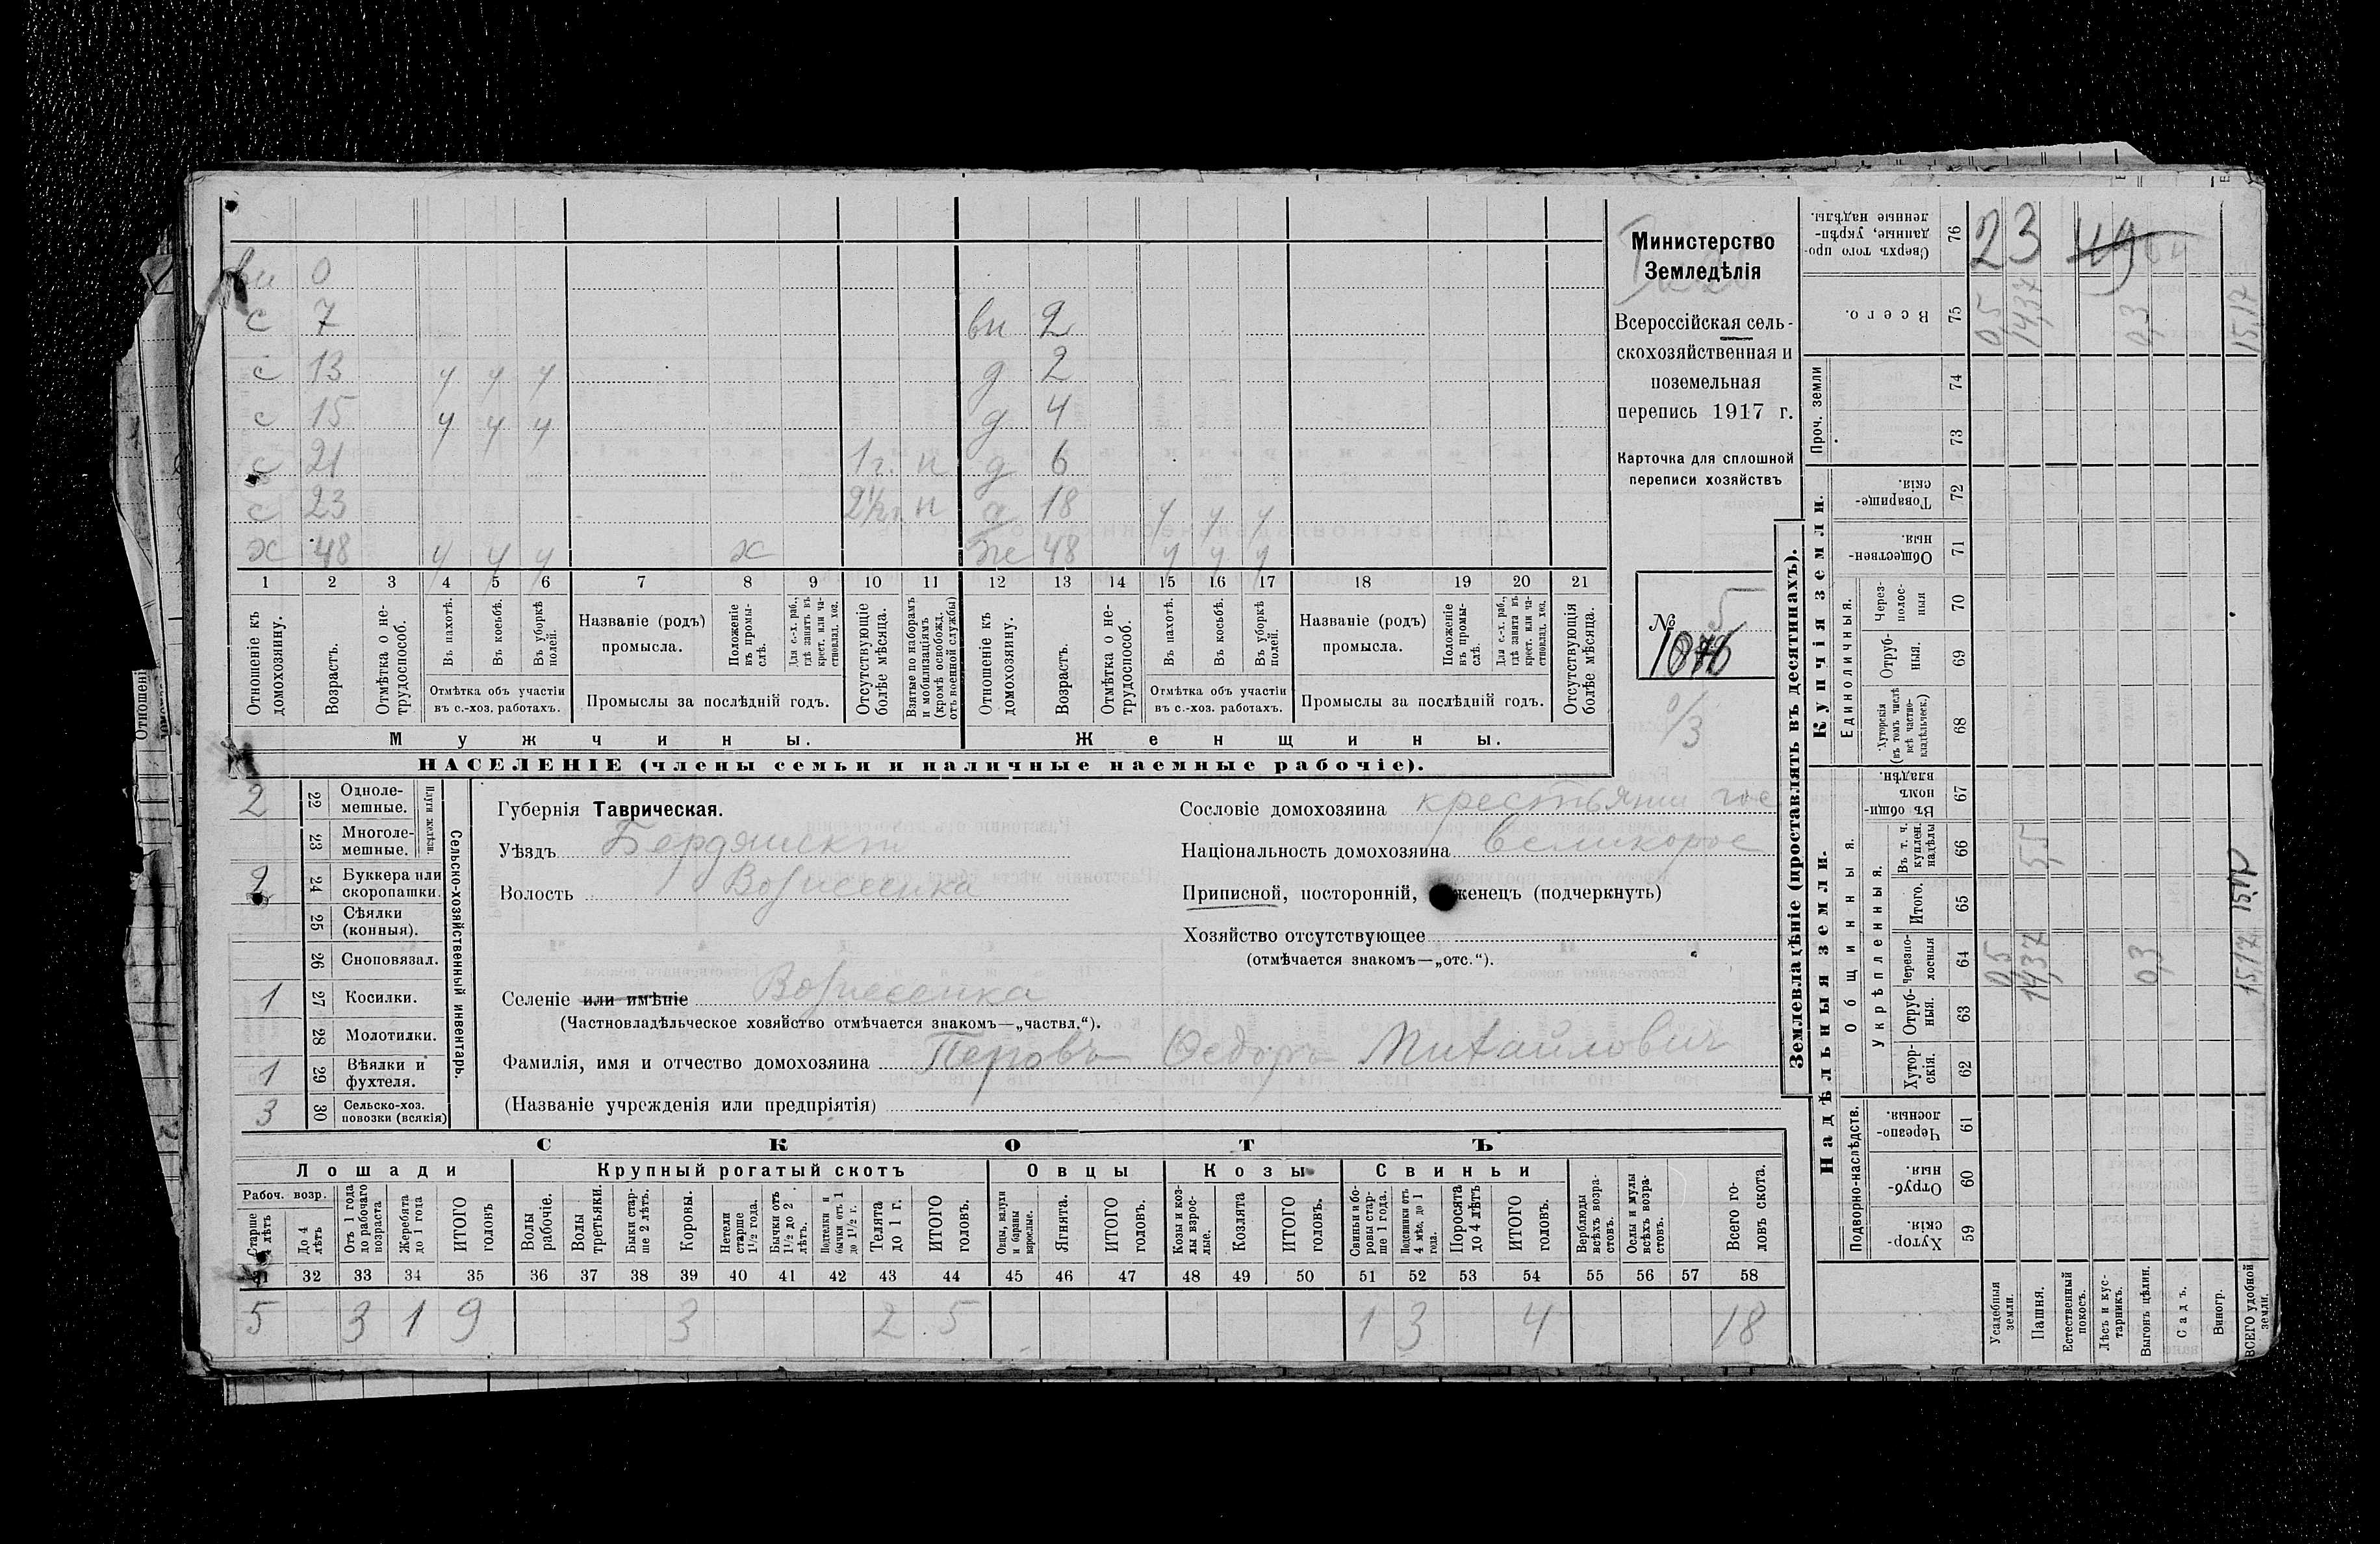 вн 0
с 7 вн 2
с 13 у у у д 2
с 15 у у у д 4
с 21 1 г. н д 6
с 23 2½ г. н д 18 у у у
х 48 у у у х ж 48 у у у
1 2 3 4 5 6 7 8 9 10 11 12 13 14 15 16 17 18 19 20 21
Отношеніе къ домохозяину.
Возрастъ.
Отмѣтка о не-трудоспособ.
Въ пахотѣ.
Въ косьбѣ.
Въ уборкѣ полей.
Отмѣтка объ участіи въ с.-хоз. работахъ.
Названіе (родъ) промысла.
Положеніе въ промы-слѣ.
Для с.-х. раб., гдѣ занятъ въ крест. или ча-стновлад. хоз.
Промыслы за послѣдній годъ.
Отсутствующіе болѣе мѣсяца.
Взятые по наборамъ и мобилизаціямъ (кромѣ освобожд. отъ военной службы)
Отношеніе къ домохозяину.
Возрастъ.
Отмѣтка о не-трудоспособ.
Въ пахотѣ.
Въ косьбѣ.
Въ уборкѣ полей.
Отмѣтка объ участіи въ с.-хоз. работахъ.
Названіе (родъ) промысла.
Положеніе въ промы-слѣ.
Для с.-х. раб., гдѣ занята въ крест. или ча-стновлад. хоз.
Промыслы за послѣдній годъ.
Отсутствующія болѣе мѣсяца.
Мужчины. Женщины.
НАСЕЛЕНІЕ (члены семьи и наличные наемные рабочіе).
Министерство
Земледѣлія
Всероссійская сель-
скохозяйственная и
поземельная
перепись 1917 г.
Карточка для сплошной
переписи хозяйствъ
№ 5
1076
Сельско-хозяйственный инвентарь.
Плуги желѣзн.
2 22 Одноле-мешные.
23 Многоле-мешные.
2 24 Буккера или скоропашки.
25 Сѣялки (конныя).
26 Сноповязал.
1 27 Косилки.
28 Молотилки.
1 29 Вѣялки и фухтеля.
3 30 Сельско-хоз. повозки (всякія)
Губернія Таврическая.
Уѣздъ Бердянскій
Волость Вознесенка
Селеніе или имѣніе Вознесенка
(Частновладѣльческое хозяйство отмѣчается знакомъ—„частвл.“).
Фамилія, имя и отчество домохозяина Перовъ Федоръ Михайлович
(Названіе учрежденія или предпріятія)
Сословіе домохозяина крестьянин
Національность домохозяина великорос
Приписной, посторонній, женецъ (подчеркнуть)
Хозяйство отсутствующее
(отмѣчается знакомъ—„отс.“).
СКОТЪ
Лошади Крупный рогатый скотъ Овцы Козы Свиньи
Рабоч. возр.
Старше 4 лѣтъ
До 4 лѣтъ
Отъ 1 года до рабочаго возраста
Жеребята до 1 года
ИТОГО головъ
Волы рабочіе.
Волы третьяки.
Быки стар-ше 2 лѣтъ.
Коровы.
Нетели старше 1½ года.
Бычки отъ 1½ до 2 лѣтъ.
Подтелки и бычки отъ 1 до 1½ г.
Телята до 1 г.
ИТОГО головъ.
Овцы, валухи и бараны взрослые.
Ягнята.
ИТОГО головъ.
Козы и коз-лы взрос-лые.
Козлята
ИТОГО головъ.
Свиньи и бо-ровы стар-ше 1 года.
Подсвинки отъ 4 мѣс. до 1 года.
Поросята до 4 лѣтъ
ИТОГО головъ.
Верблюды всѣхъ возра-стовъ.
Ослы и мулы всѣхъ возра-стовъ.
Всего го-ловъ скота.
31 32 33 34 35 36 37 38 39 40 41 42 43 44 45 46 47 48 49 50 51 52 53 54 55 56 57 58
5 3 1 9 3 2 5 1 3 4 18
Землевладѣніе (проставлять въ десятинахъ).
Надѣльныя земли. Купчія земли.
Проч. земли
Подворно-наслѣдств.
Общинныя.
Укрѣпленныя.
Единоличныя.
Хутор-скія. 59
Отруб-ныя. 60
Черезпо-лосныя. 61
Хутор-скія. 62
Отруб-ныя. 63
Черезпо-лосныя 64
Итого. 65
Въ т. ч. куплен. надѣлы 66
Въ общин-номъ владѣн. 67
Хуторскія (въ томъ числѣ всѣ частно-владѣльческ.) 68
Отруб-ныя. 69
Через-полос-ныя 70
Обществен-ныя. 71
Товарище-скія. 72
73
74
Всего. 75
Сверхъ того про-данные, укрѣп-ленные надѣлы. 76
Усадебныя земли. 0,5 0,5
Пашня. 14,37 5,5 14,37
Естественный покосъ.
Лѣсъ и кус-тарникъ.
Выгонъ цѣлин. 0,3 0,3
Садъ.
Виногр.
ВСЕГО удобной земли. 15,17 15,17 15,17
23
49